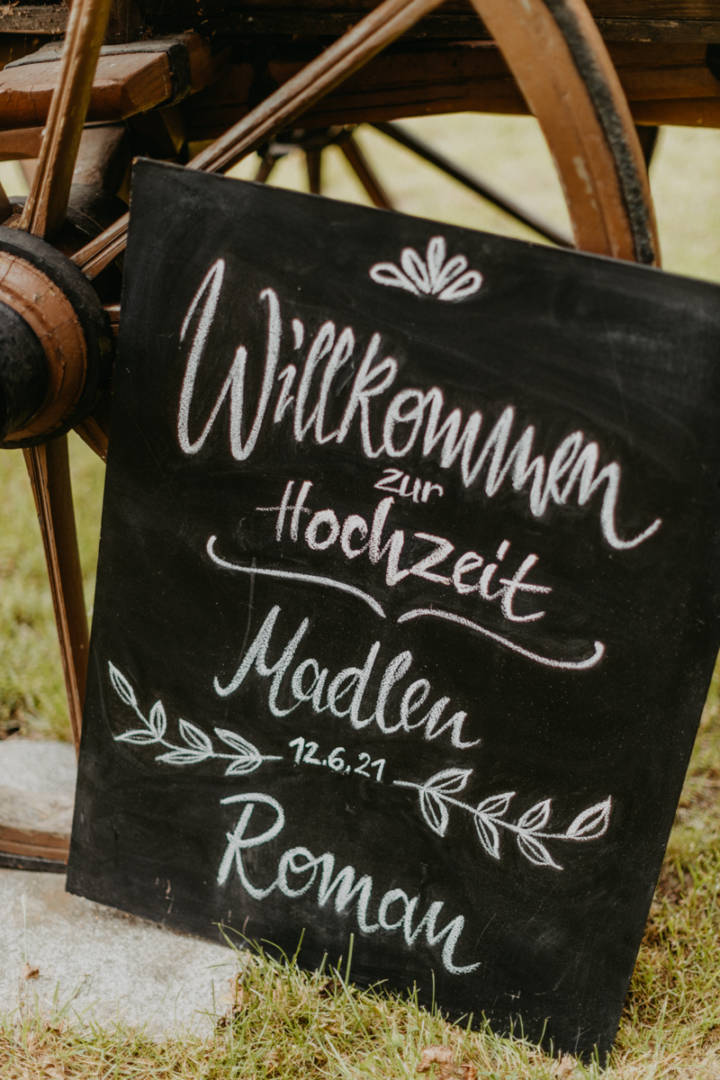 Willkommen
zur
Hochzeit
Madlen
12.6.21
Roman